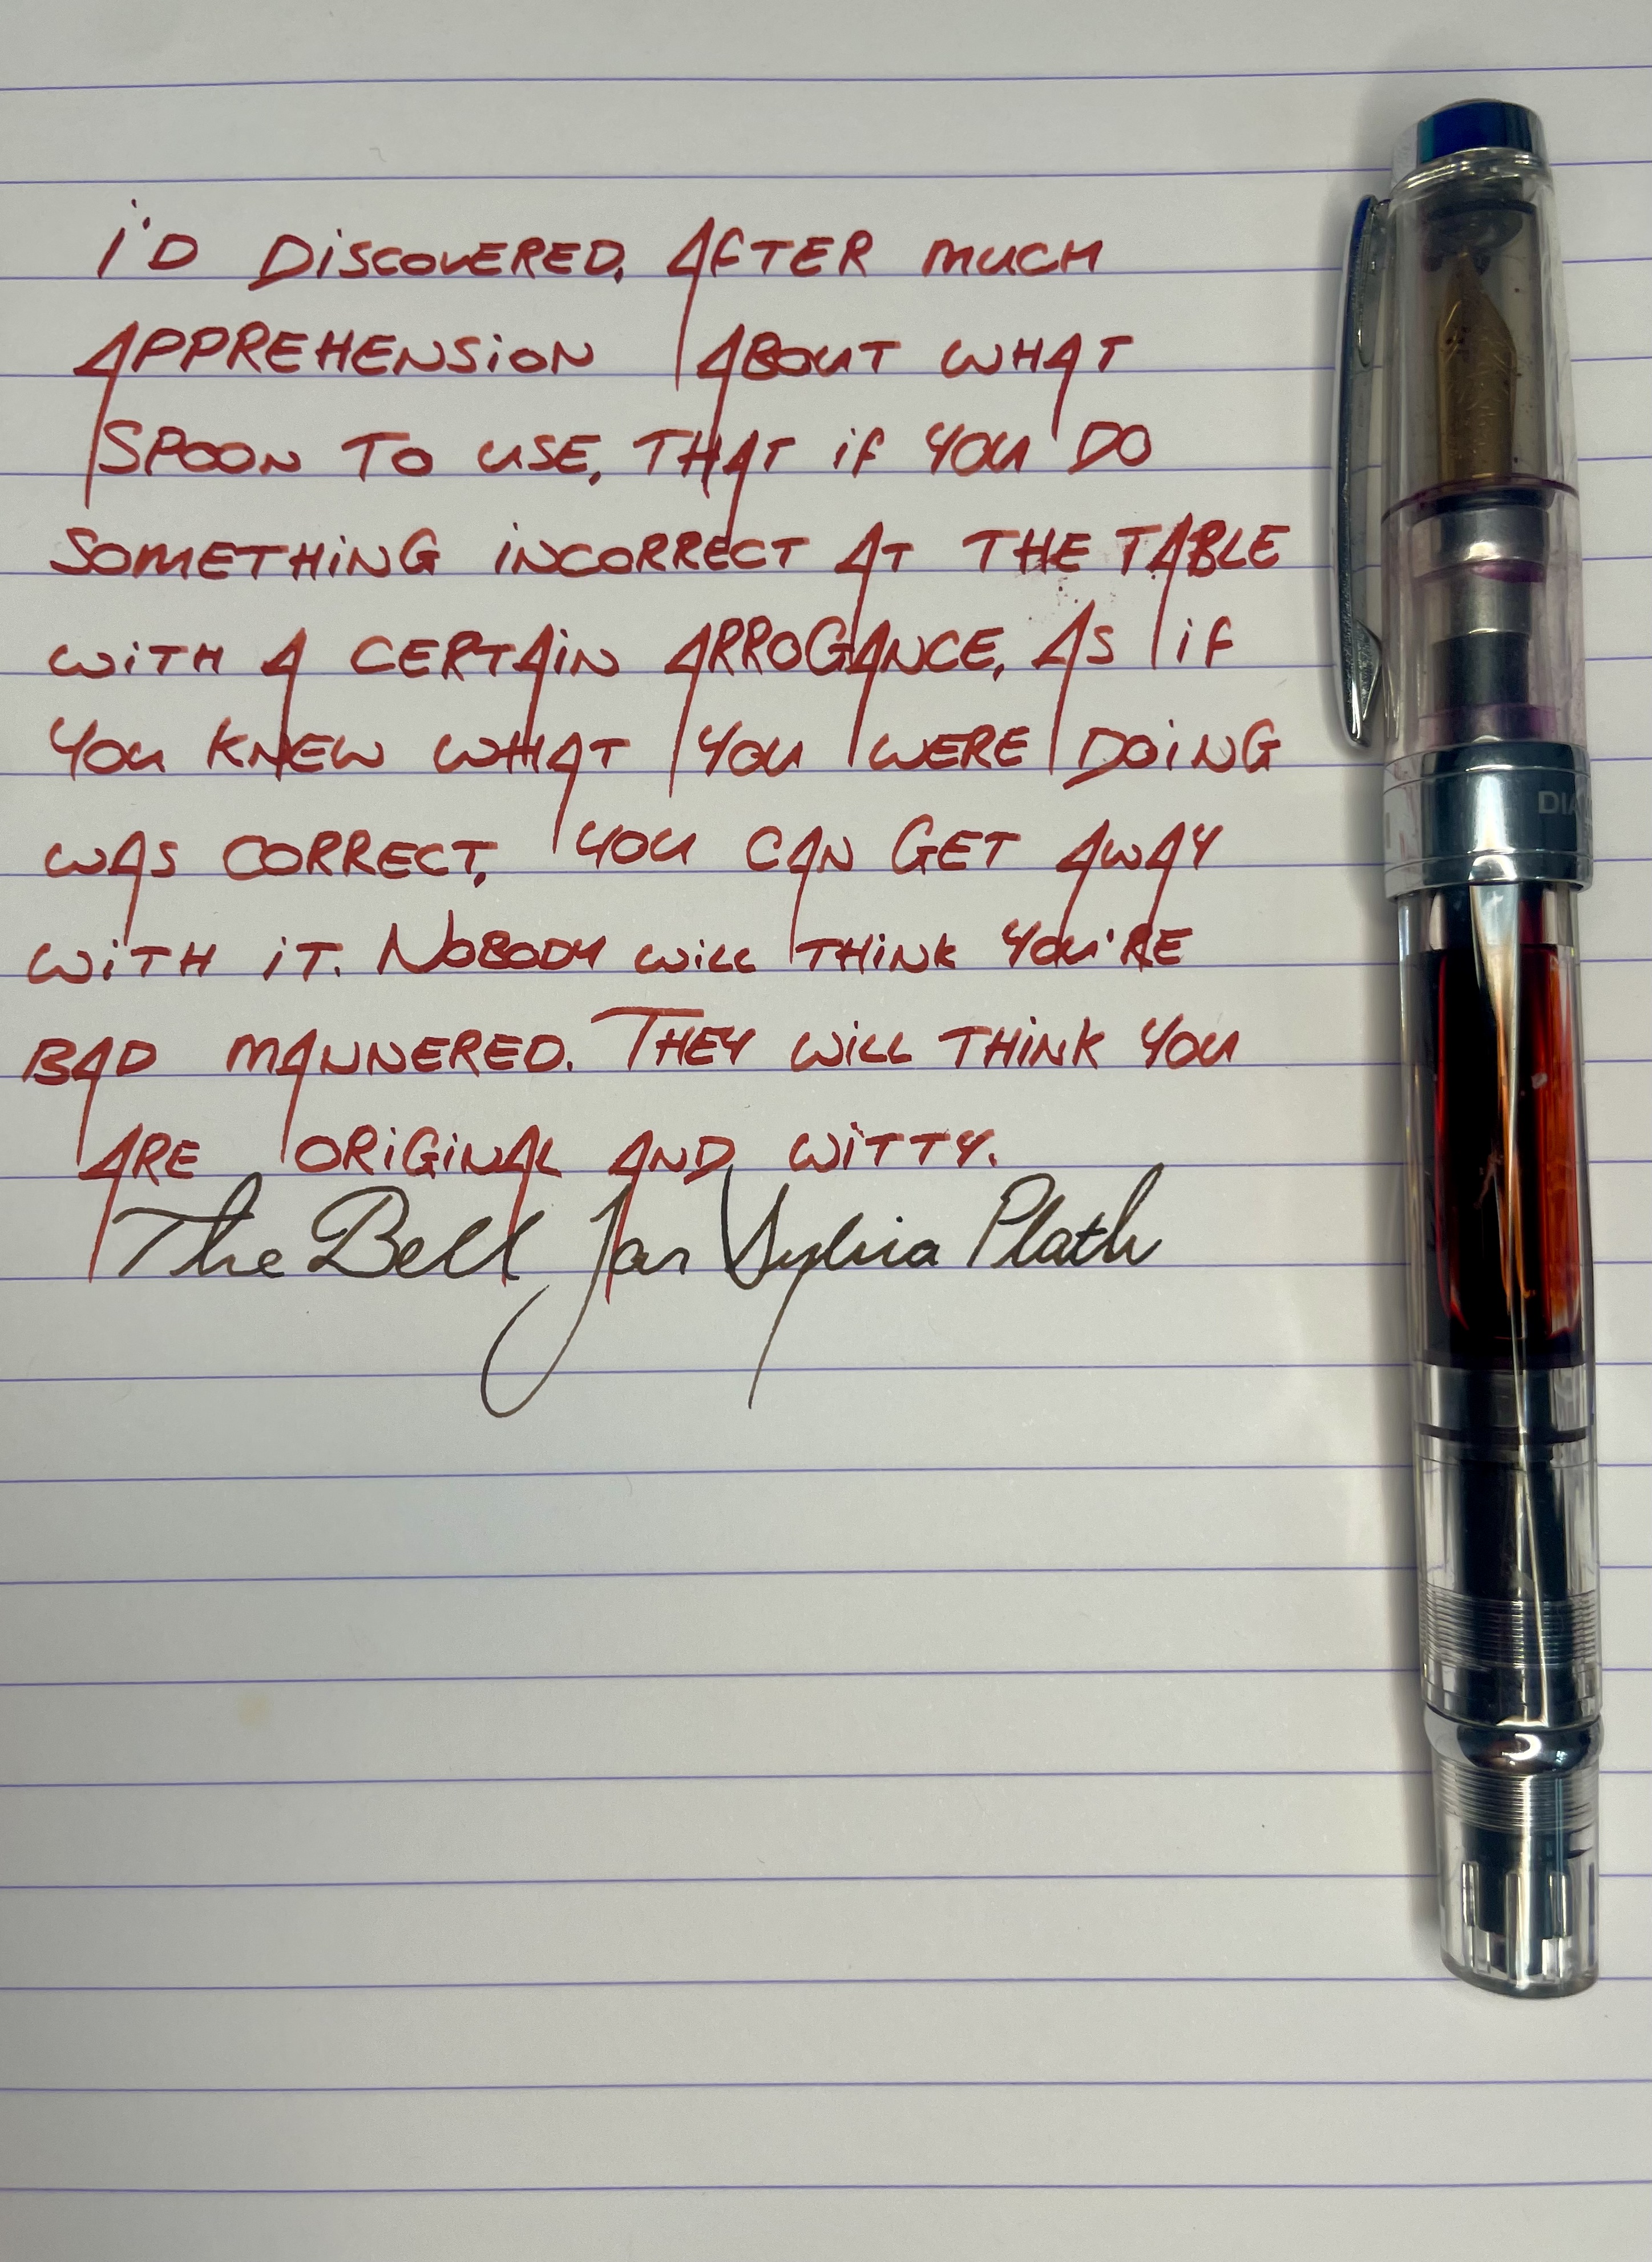 I'D DISCOVERED, AFTER MUCH
APPREHENSION ABOUT WHAT
SPOON TO USE, THAT IF YOU DO
SOMETHING INCORRECT AT THE TABLE
WITH A CERTAIN ARROGANCE, AS IF
YOU KNEW WHAT YOU WERE DOING
WAS CORRECT, YOU CAN GET AWAY
WITH IT. NOBODY WILL THINK YOU'RE
BAD MANNERED. THEY WILL THINK YOU
ARE ORIGINAL AND WITTY.
The Bell Jar Sylvia Plath